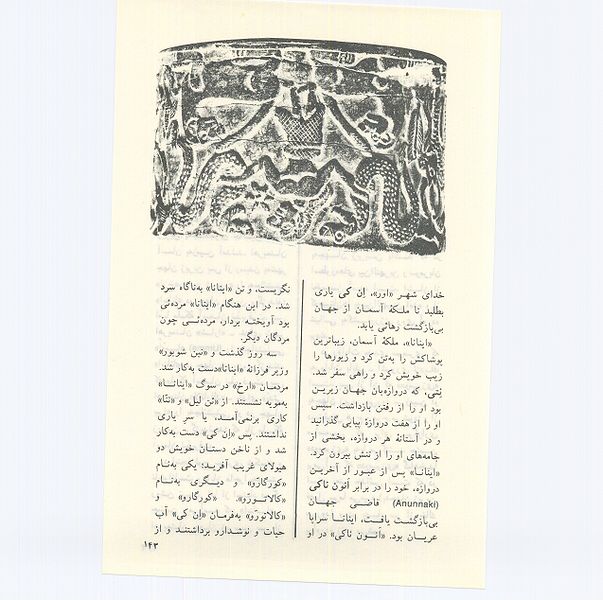 خدای شهر «اور»، اِن کی یاری
بطلبد تا ملکهٔ آسمان از جهان
بی‌بازگشت رهائی یابد.
«اینانا»، ملکهٔ آسمان، زیباترین
پوشاکش را به‌تن کرد و زیورها را
زیب خویش کرد و راهی سفر شد.
نِتی، که دروازه‌بان جهان زیرین
بود او را از رفتن بازداشت. سپس
او را از هفت دروازهٔ بیابی گذرانید
و در آستانهٔ هر دروازه، بخشی از
جامه‌های او را از تنش بیرون کرد.
«اینانا» پس از عبور از آخرین
دروازه، خود را در برابر اَنون ناکی
(Anunnaki) قاضی جهان
بی‌بازگشت یافت، اینانا سراپا
عریان بود. «اَنون ناکی» در او
نگریست، و تن «اینانا» به‌ناگاه سرد
شد. در این هنگام «اینانا» مرده‌ئی
بود آویخته بردار، مرده‌ئی چون
مردگان دیگر.
سه روز گذشت و «نین شوبور»
وزیر فرزانهٔ «اینانا» دست به‌کار شد.
مردمان «ارخ» در سوگ «اینانا»
به‌مویه نشستند. از «ئن لیل» و «ننّا»
کاری برنمی‌آمد، یا سر یاری
نداشتند. پس «اِن کی» دست به‌کار
شد و از ناخن دستان خویش دو
هیولای غریب آفرید؛ یکی به‌نام
«کورگارّو» و دیگری به‌نام
«کالاتورّو». «کورگارو» و
«کالاتورّو» به‌فرمان «اِن کی» آب
حیات و نوشدارو برداشتند و از
۱۴۳